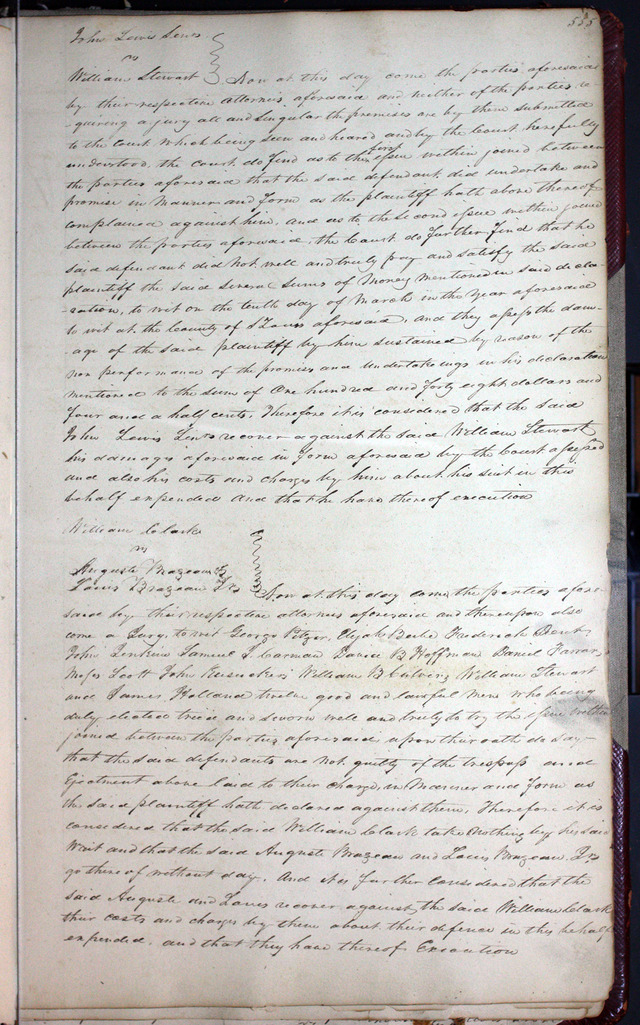 555
John Lewis Sents
vs
William Stewart Now at this day come the parties aforesaid
by their respective attornies aforesaid and neither of the parties re-
-quiring a jury all and singular the premises are by them submitted
to the court which being seen and heard and by the Court here fully
understood, the court do find as to the first issue within joined between
the parties aforesaid that the said defendant did undertake and
promise in manner and form as the plaintiff hath above thereof
complained against him, and as to the second issue within joined
between the parties aforesaid, the Court do further find that he
said defendant did not well and truly pay and satisfy the said
plaintiff the said several sums of money mentioned in said decla-
-ration, to wit on the tenth day of March in the year aforesaid
to wit at the County of St Louis aforesaid, and they assess the dam-
-age of the said plaintiff by him sustained by reason of the
non performance of the promises and undertakings in his declaration
mentioned to the sum of One hundred and forty eight dollars and
four and a half cents. Therefore it is considered that the said
John Lewis Sents recover against the said William Stewart
his damages aforesaid in form aforesaid by the Court assessed
and also his costs and charges by him about his suit in this
behalf expended and that he have thereof execution
William Clark
vs
Auguste Brazeau &
Louis Brazeau Jr Now at this day come the parties afore-
said by their respective attornies aforesaid and thereupon also
come a Jury, to wit George Pitzer, Frederick Dent,
John Jenkins Samuel J. Carman David B Hoffman Daniel Farrar,
Moses Scott John William B Culver, William Stewart
and James Holland twelve good and lawful men who being
duly elected tried and sworn well and truly to try the issue within
joined between the parties aforesaid upon their oath do say
that the said defendants are not guilty of the trespass and
Ejectment above laid to their charge, in Manner and form as
the said plaintiff hath declared against them, Therefore it is
considered that the said William Clark take nothing by his said
Writ and that the said Auguste Brazeau and Louis Brazeau Jr
go thereof without day. And it is further considered that the
said Auguste and Louis recover against the said William Clark
their costs and charges by them about their defence in this behalf
expended, and that they have thereof Execution